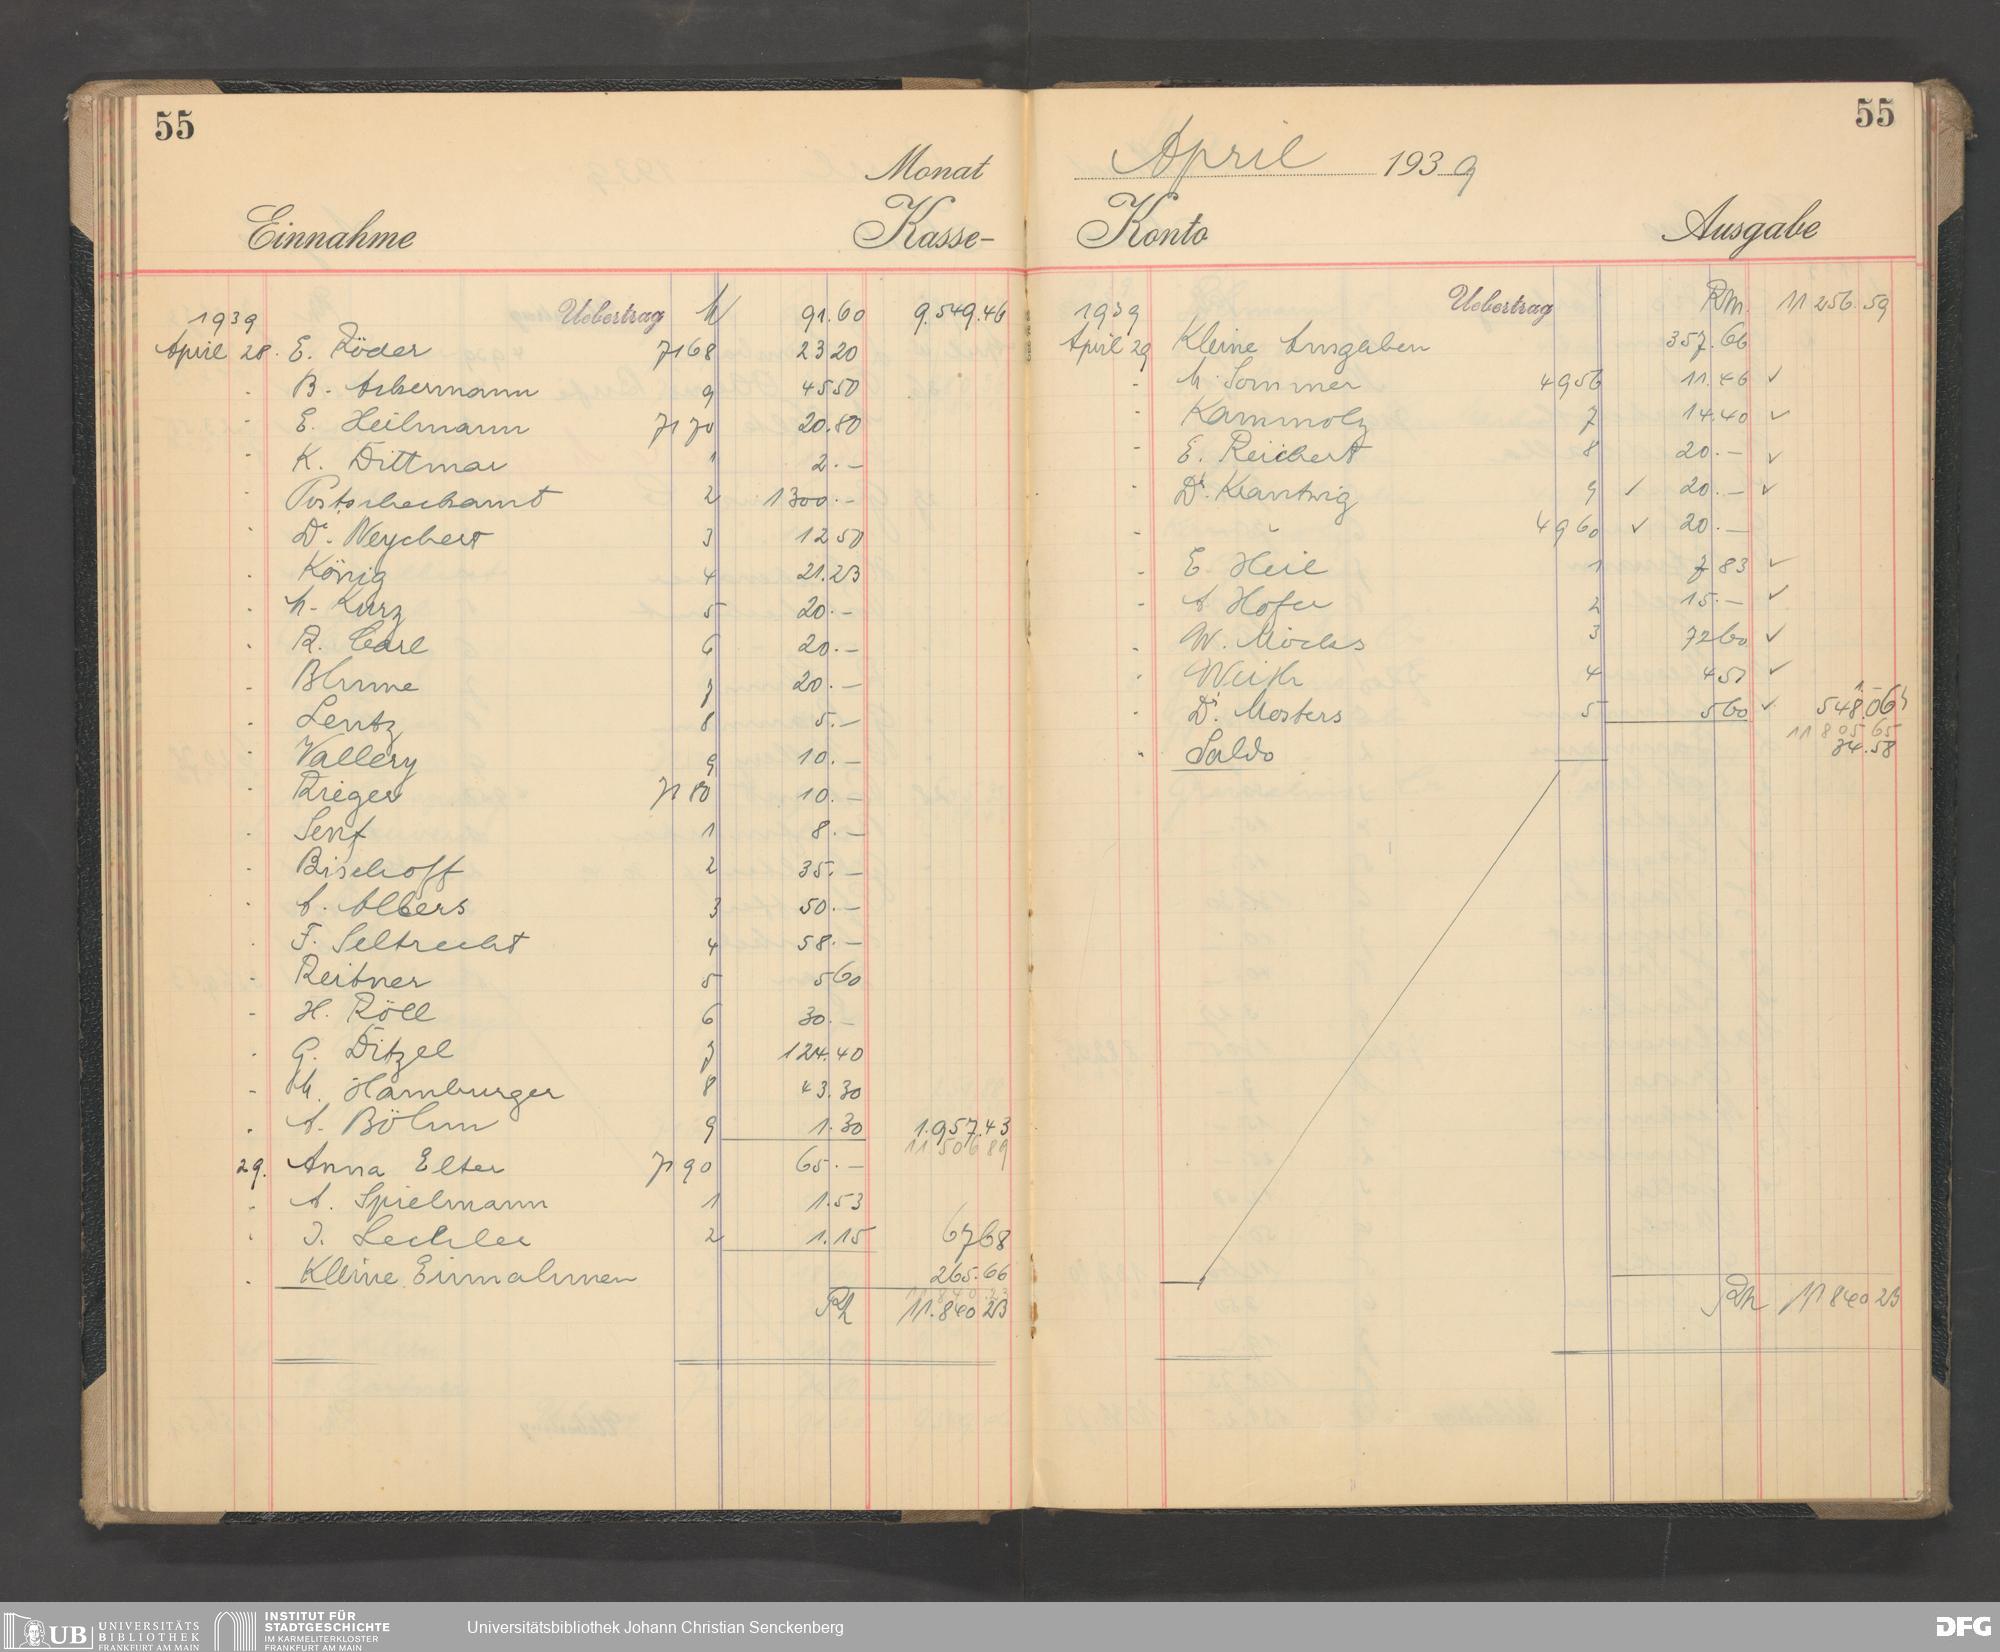 55
Monat
Einnahme Kasse-
1939 Uebertrag M 91.60 9.549.46
April 28. E. Röder 7168 23 20
- B. Ackermann 9 45 50
- E. Heilmann 71 70 20.80
- K. Dittmar 1 2.-
- Postscheckamt 2 1300.-
- Dr. Weychert 3 12 50
- König 4 21.23
- M. Kurz 5 20.-
- R. Carl 6 20.-
- Blume 7 20.-
- Lentz 8 5.-
- Vallery 9 10.-
- Rieger 71 80 10.-
- Senf 1 8.-
- Bischoff 2 35.-
- A. Albers 3 50.-
- F. Seltrecht 4 58.-
- Reitner 5 5 60
- H. Röll 6 30.-
- G. Ditzel 7 124.40
- M. Hamburger 8 43.30
- A. Böhm 9 1.30 1.957.43
11 506 89
29. Anna Elter 71 90 65.-
- A. Spielmann 1 1.53
- J. Lechler 2 1.15 67 68
- Kleine Einnahmen 265.66
11 840.23
RM 11.840 23
55
April 1939
Konto Ausgabe
1939 Uebertrag RM. 11 256.59
April 29 Kleine Ausgaben 357.66
- M. Sommer 4956 11.46 ✓
- Kammolz 7 14.40 ✓
- E. Reichert 8 20.- ✓
- Dr. Krantwig 9 ✓ 20.- ✓
- " 4960 ✓ 20.-
- E. Heil 1 7 83 ✓
- A Hofer 2 15.- ✓
- W. Möcks 3 72 60 ✓
- 4 4 51 ✓
- Dr. Mosters 5 5 60 ✓ 548.06
11 805 65
- Saldo 34.58
RM 11 840 23
UB UNIVERSITÄTS
BIBLIOTHEK
FRANKFURT AM MAIN
INSTITUT FÜR
STADTGESCHICHTE
IM KARMELITERKLOSTER
FRANKFURT AM MAIN
Universitätsbibliothek Johann Christian Senckenberg
DFG